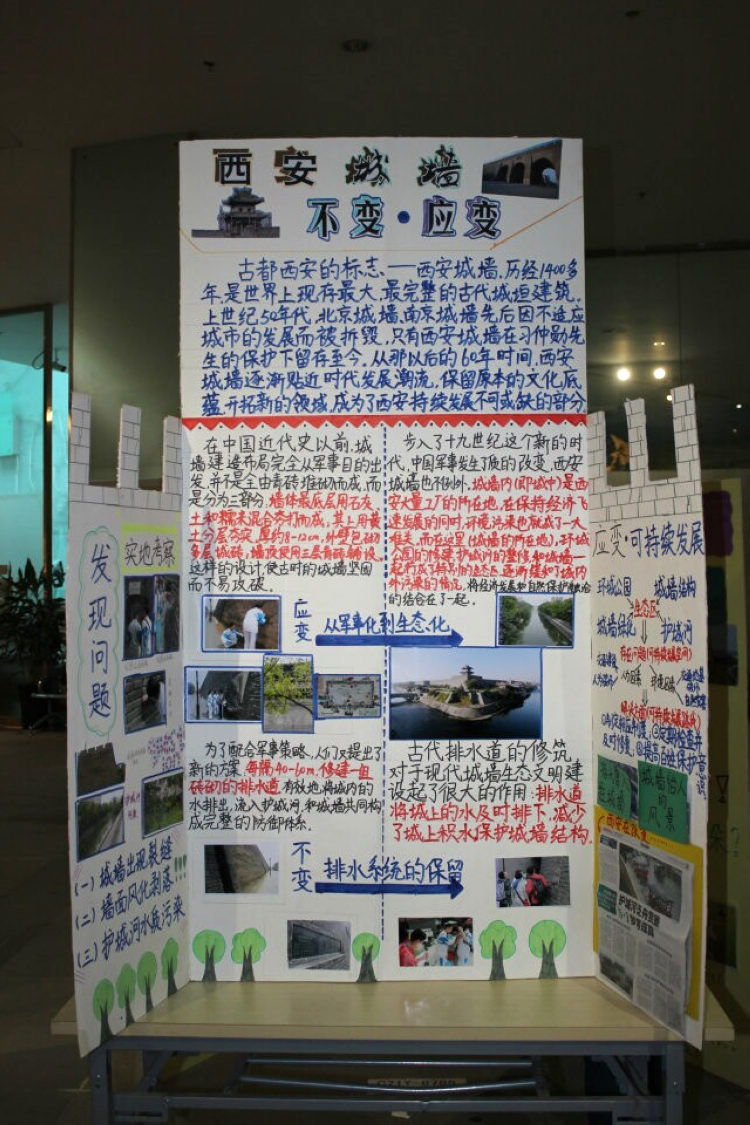 西安城墙
不变·应变
古都西安的标志——西安城墙,历经1400多
年,是世界上现存最大、最完整的古代城垣建筑。
上世纪50年代,北京城墙、南京城墙先后因不适应
城市的发展而被拆毁,只有西安城墙在习仲勋先
生的保护下留存至今。从那以后的60年时间,西安
城墙逐渐贴近时代发展潮流,保留原本的文化底
蕴,开拓新的领域,成为了西安持续发展不可或缺的部分
在中国近代史以前,城
墙建造布局完全从军事目的出
发,并不是全由青砖堆砌而成,而
是分为三部分,墙体最底层用石灰、
土和糯米混合夯打而成,其上用黄
土分层夯实,厚约8-12cm,外壁包砌
多层城砖,墙顶使用三层青砖铺设。
这样的设计,使古时的城墙坚固
而不易攻破。
应变
从军事化到生态化
为了配合军事策略,人们又提出了
新的方案,每隔40-60m,修建一组
砖砌的排水道,有效地将城内的
水排出,流入护城河,和城墙共同构
成完整的防御体系。
不变
排水系统的保留
步入了十九世纪这个新的时
代,中国军事发生了质的改变,西安
城墙也不例外,城墙内(即城中)是西
安大量工厂的所在地,在保持经济飞
速发展的同时,环境污染也就成了一大
难关,而在这里(城墙的所在地),环城
公园的修建,护城河的整修,和城墙一
起行成了特别的生态区,逐渐缓和了城内
外污染的情况,将经济发展和自然保护
的结合在了一起。
古代排水道的修筑,
对于现代城墙生态文明建
设起了很大的作用:排水道
将城上的水及时排下,减少
了城上积水,保护城墙结构。
发现问题
实地考察
护城河
(一)城墙出现裂缝
(二)墙面风化剥落!!!
(三)护城河水被污染
应变·可持续发展
环城公园 城墙结构
生态区
城墙绿化 护城河
存在问题(可持续发展空间)
人为因素 环境因素
解决方案(可持续发展做法)
①定期检查并
及时修复
城墙怡人
的
风景
西安在改变